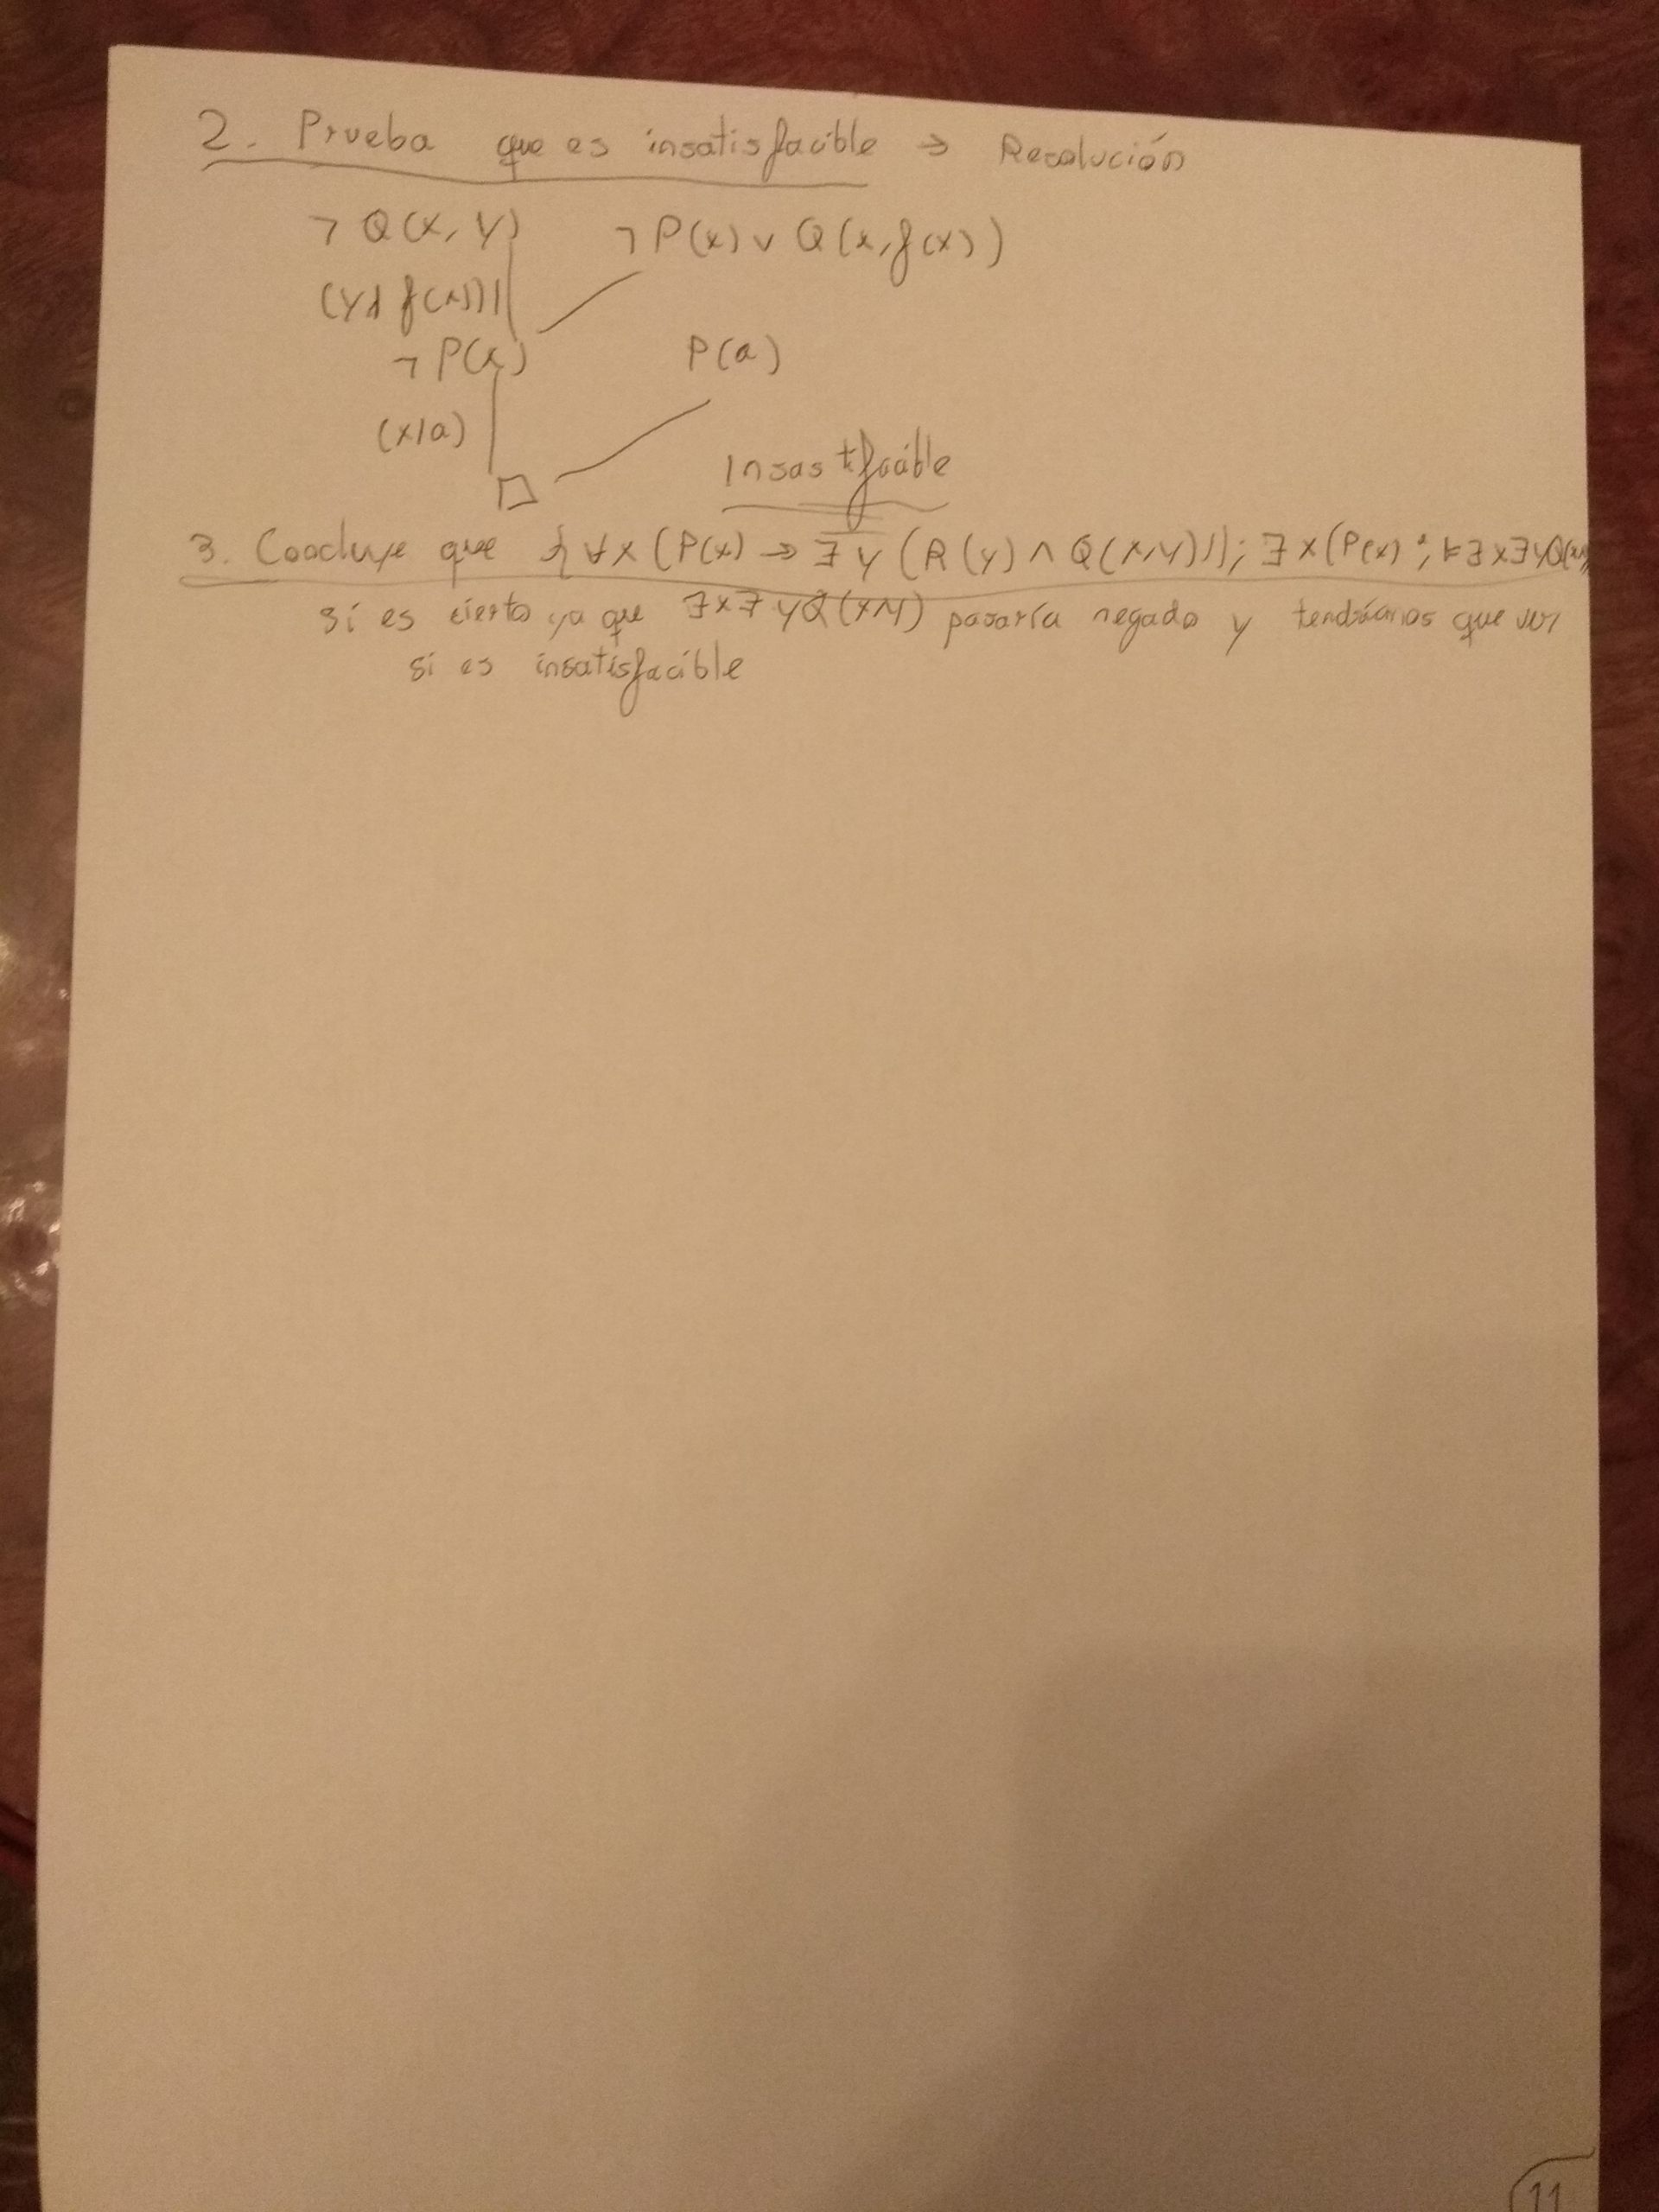 2. Prueba que es insatisfacible → Resolución
¬Q(x,y) ¬P(x) ∨ Q(x,f(x))
(y|f(x))
¬P(x) P(a)
(x|a)
□ Insastfacible
3. Concluye que {∀x(P(x) → ∃y(R(y) ∧ Q(x,y))); ∃x(P(x)); ⊨ ∃x∃yQ(x,y)
si es cierto ya que ∃x∃yQ(x,y) pasaría negado y tendríamos que ver
si es insatisfacible
11